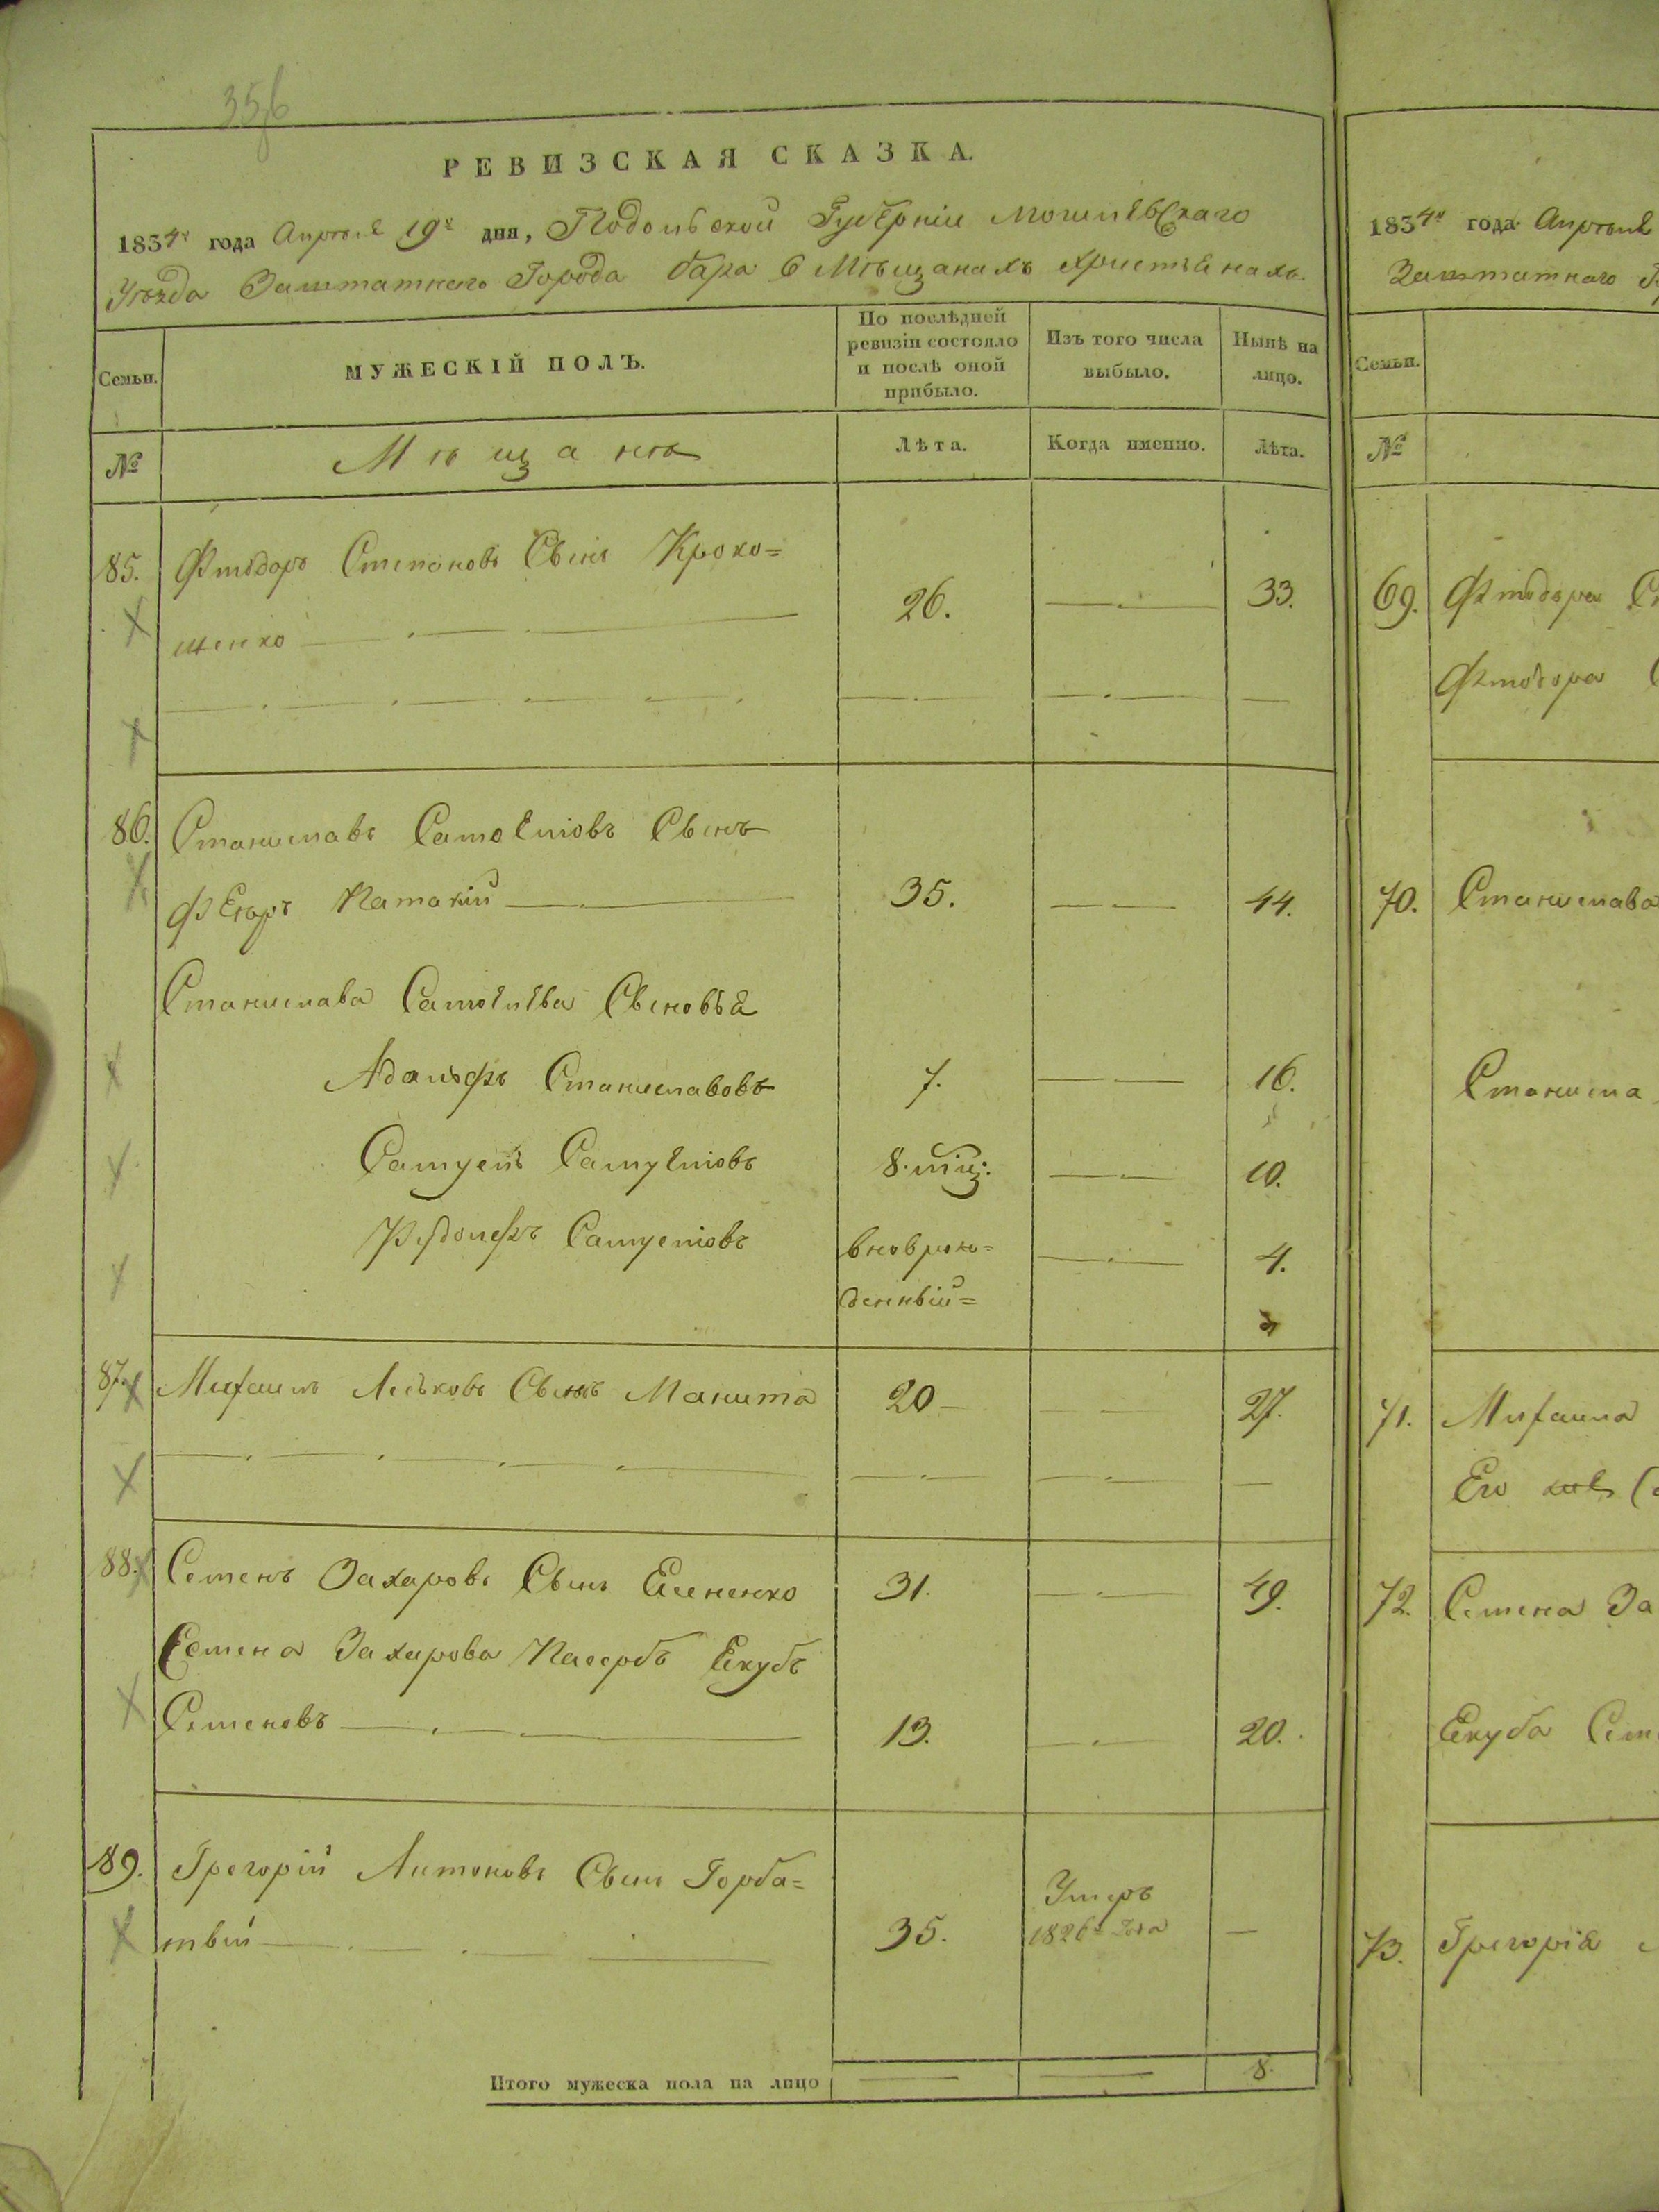 356
РЕВИЗСКАЯ СКАЗКА.
1834го года Апреля 19го дня, Подольской Губерніи Могилевскаго
Уѣзда Заштатнаго Города Бара О Мѣщанахъ Христіанахъ.
Семьи.
МУЖЕСКІЙ ПОЛЪ.
По послѣдней ревизіи состояло и послѣ оной прибыло.
Изъ того числа выбыло.
Нынѣ на лицо.
№
Мѣщанѣ
Лѣта.
Когда именно.
Лѣта.
85. Фѣодоръ Степановъ Сынъ Крохо=
щенко 26. 33.
86. Станиславъ Самоеліовъ Сынъ
35. 44.
Станислава Самоелева Сыновья
Адальфъ Станиславовъ 7. 16.
Самуель Самуеліовъ 8. міц: 10.
Рудольфъ Самуеліовъ вноврож= 4.
денный=
87. Михаилъ Леськовъ Сынъ Манита 20 27.
88. Семенъ Захаровъ Сынъ Есененко 31. 49.
Семена Захарова Пасербъ Екубъ
Семеновъ 13. 20.
89. Грегорій Антоновъ Сынъ Горба=
тый 35. Умеръ
1826го года
Итого мужеска пола на лицо 8.
1834го года Апреля
Заштатнаго
Семьи.
№
69. Фѣодора
Фѣодора
70. Станислава
Станисла
71. Михаила
Его
72. Семена За
Екуба Сем
73. Грегорія